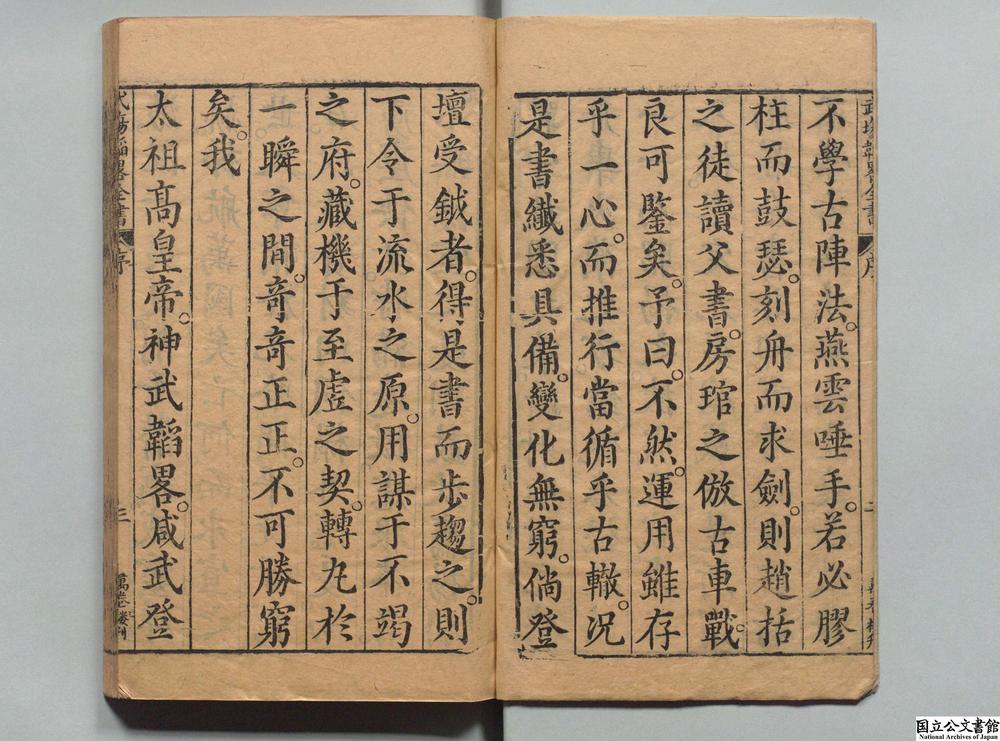 不學古陣法。燕雲唾手。若必膠
柱而鼓瑟。刻舟而求劍。則趙括
之徒讀父書。房琯之倣古車戰。
良可鑒矣。予曰。不然。運用雖存
乎一心。而推行當循乎古轍。況
是書纖悉具備。變化無窮。倘登
壇受鉞者。得是書而步趨之。則
下令于流水之原。用謀于不竭
之府。藏機于至虛之契。轉丸於
一瞬之間。竒竒正正。不可勝窮
矣。我
太祖高皇帝。神武韜畧。咸武登
武塲韜畧全書
序
三
國立公文書館
National Archives of Japan